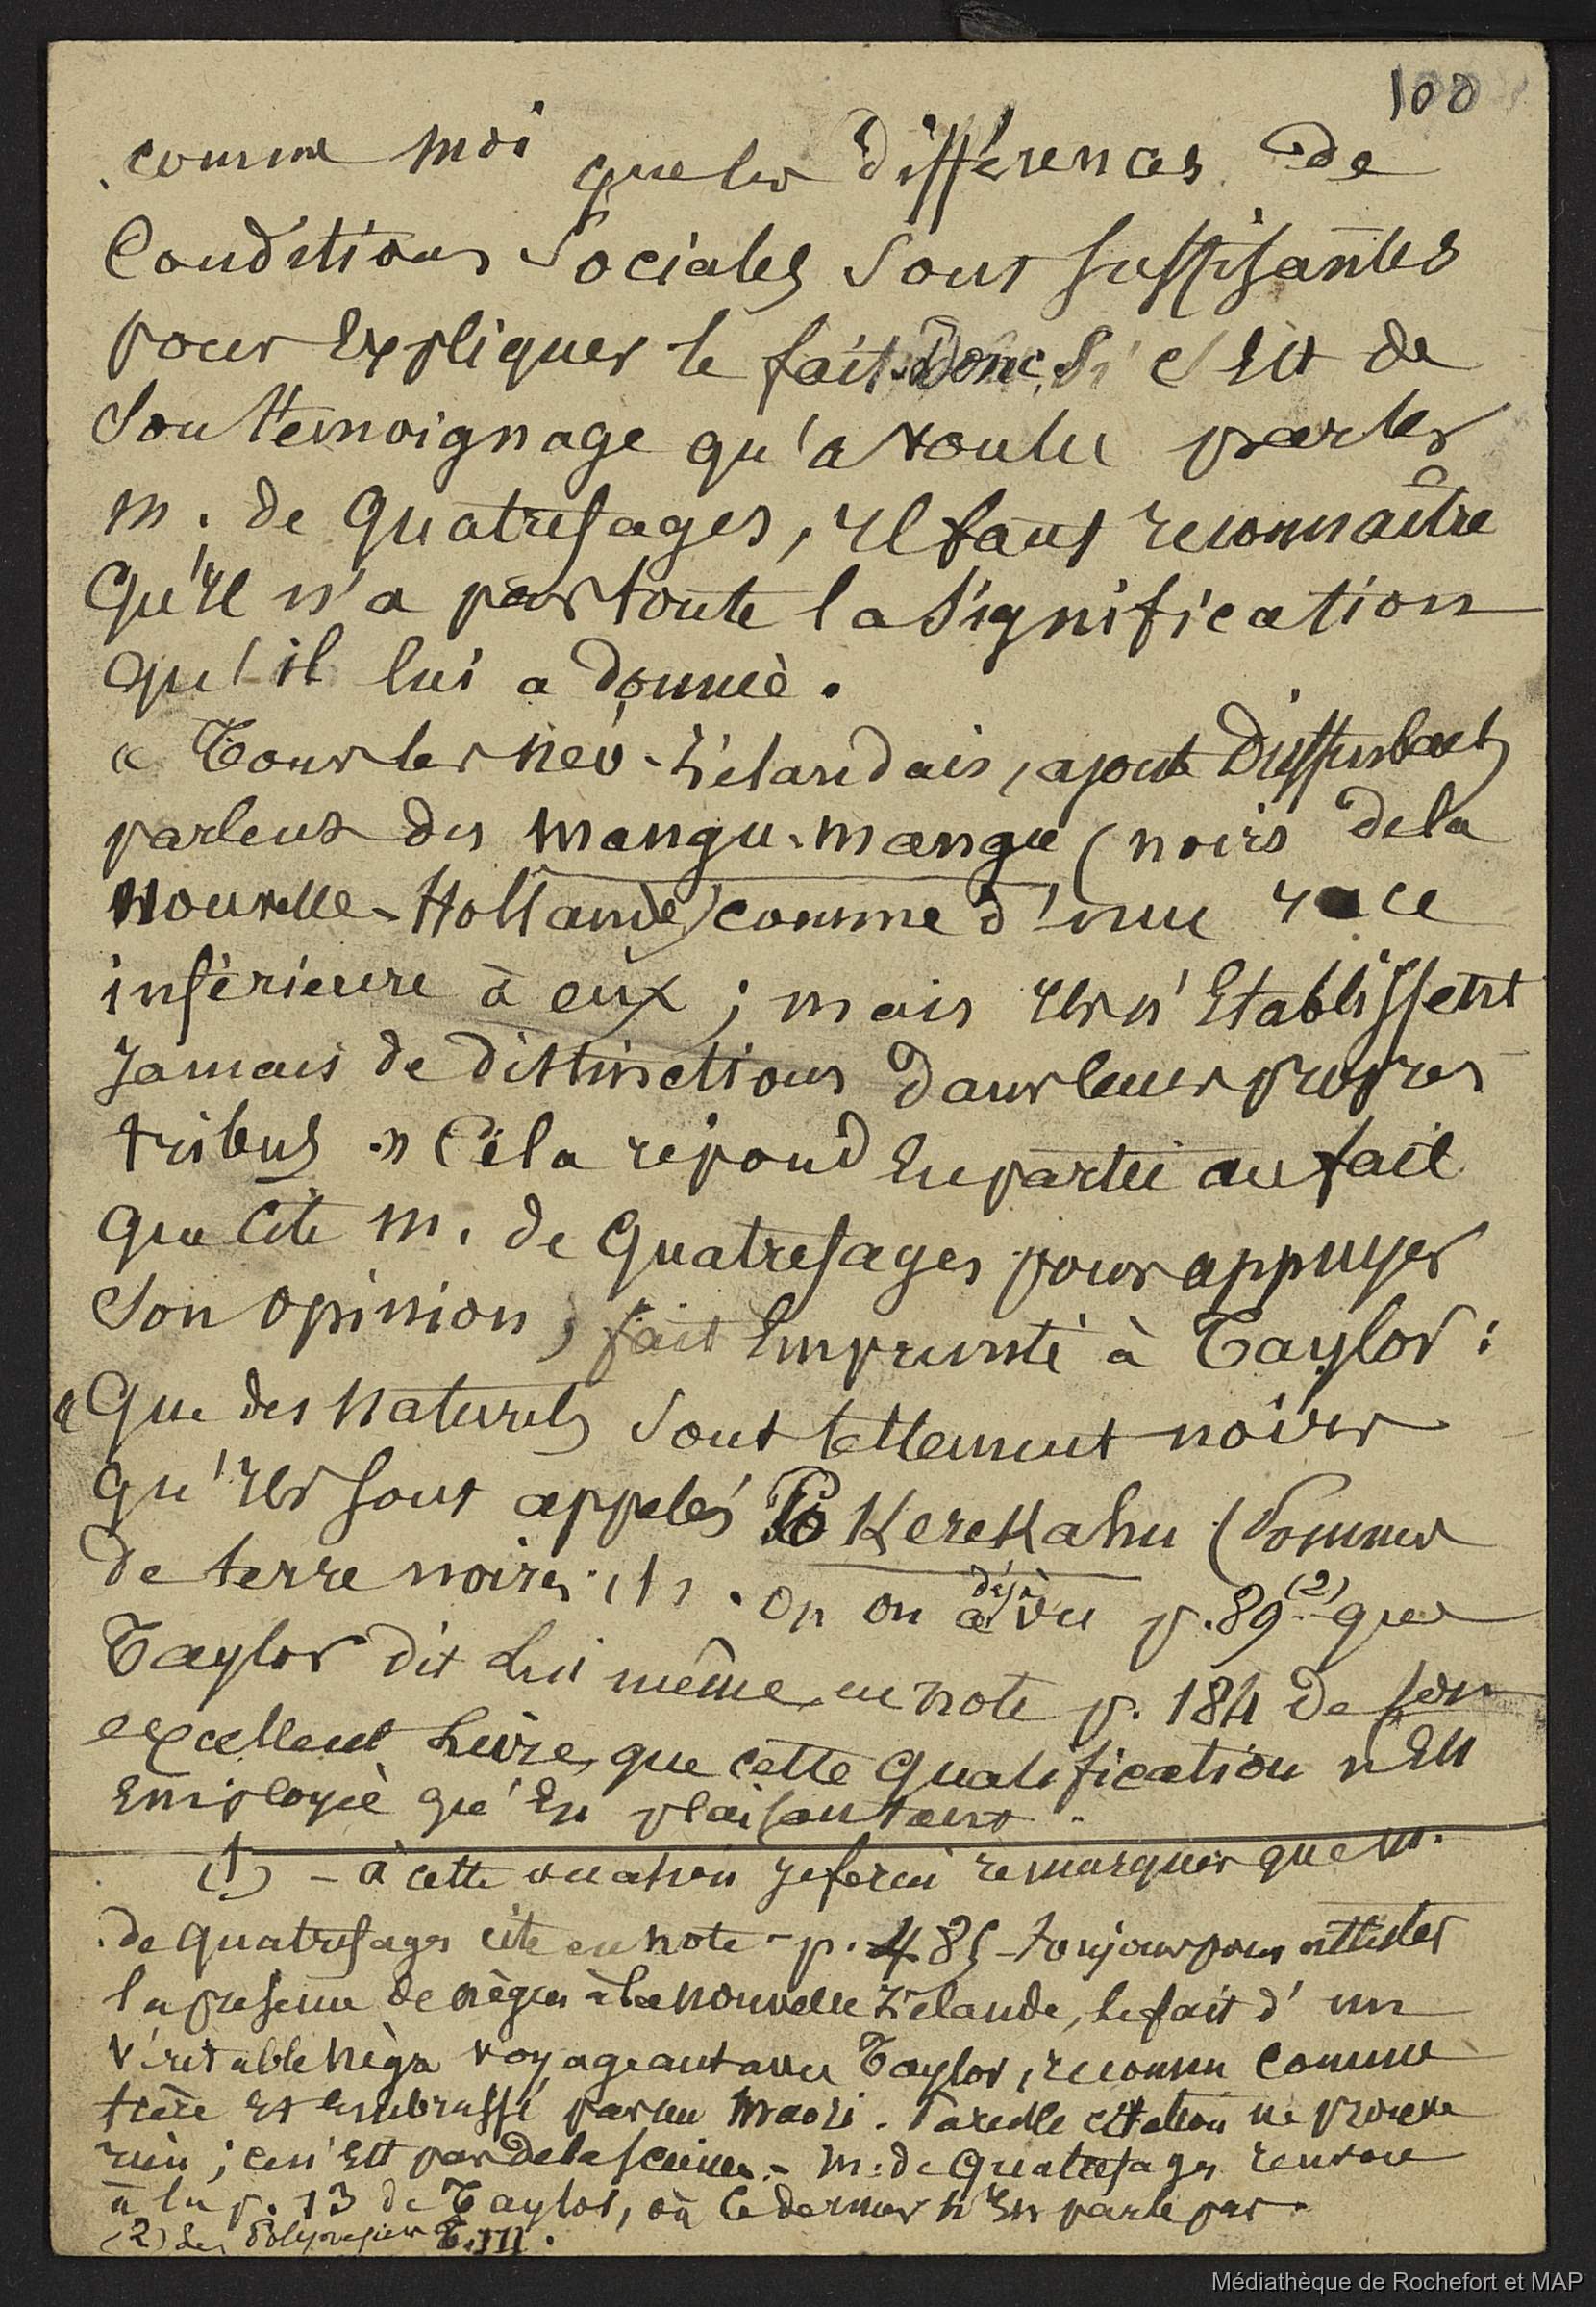 100
comme moi que les différences de
Conditions Sociales sont suffisantes
pour Expliquer le fait. Donc, si c'Est de
son témoignage qu'a voulu parler
M. de Quatrefages, il faut reconnaître
qu'il n'a pas toute la signification
qu'il lui a donnée.
« Tous les Néo-Zélandais, ajoute Dieffenbach
parlent des mangu-mangu (noirs de la
Nouvelle-Hollande) comme d'une race
inférieure à eux ; mais ils n'Etablissent
Jamais de distinctions dans leurs propres
tribus .» Cela répond En partie au fait
que Cite M. de Quatrefages pour appuyer
son opinion, fait Emprunté à Taylor :
« Que des Naturels sont tellement noirs
qu'ils sont appelés Po Kerekahu (Pommes
de terre noires. (1) . On on a déjà vu p. 89 (2) que
Taylor dit lui même, en note p. 184 de son
excellent livre, que cette qualification n'Est
Employée qu'En plaisantant.
(1) – à cette occasion je ferai remarquer que M.
de Quatrefages cite en note – p. 485 – toujours pour attester
la présence de nègres à la Nouvelle Zélande, le fait d'un
véritable Nègre voyageant avec Taylor, reconnu Comme
frère Et Embrassé par un Maori. Pareille citation ne prouve
rien ; ce n'Est pas de la science. – M. de Quatrefages renvoie
à la p. 13 de Taylor, où ce dernier n'En parle pas.
(2) Les Polynésiens T. III.
Médiathèque de Rochefort et MAP